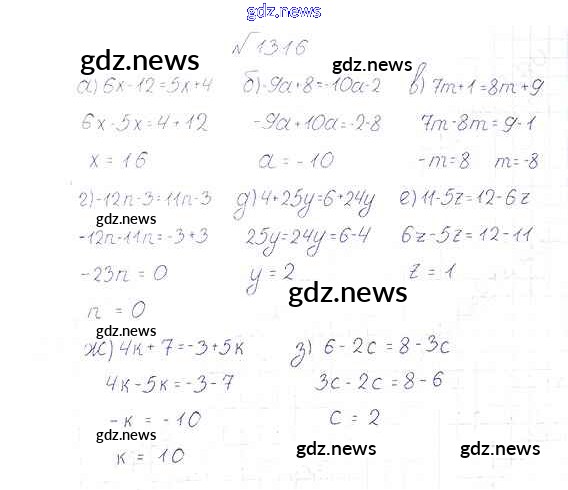 gdz.news
№1316
gdz.news gdz.news
а) 6x-12=5x+4 б) -9a+8=-10a-2 в) 7m+1=8m+9
6x-5x=4+12 -9a+10a=-2-8 7m-8m=9-1
x=16 a=-10 -m=8 m=-8
г) -12n-3=11n-3 д) 4+25y=6+24y е) 11-5z=12-6z
gdz.news
-12n-11n=-3+3 25y=24y=6-4 6z-5z=12-11
-23n=0 y=2 z=1
gdz.news
n=0
gdz.news
ж) 4к+7=-3+5к з) 6-2c=8-3c
4к-5к=-3-7 3c-2c=8-6
-к=-10 c=2
gdz.news
к=10 gdz.news gdz.news